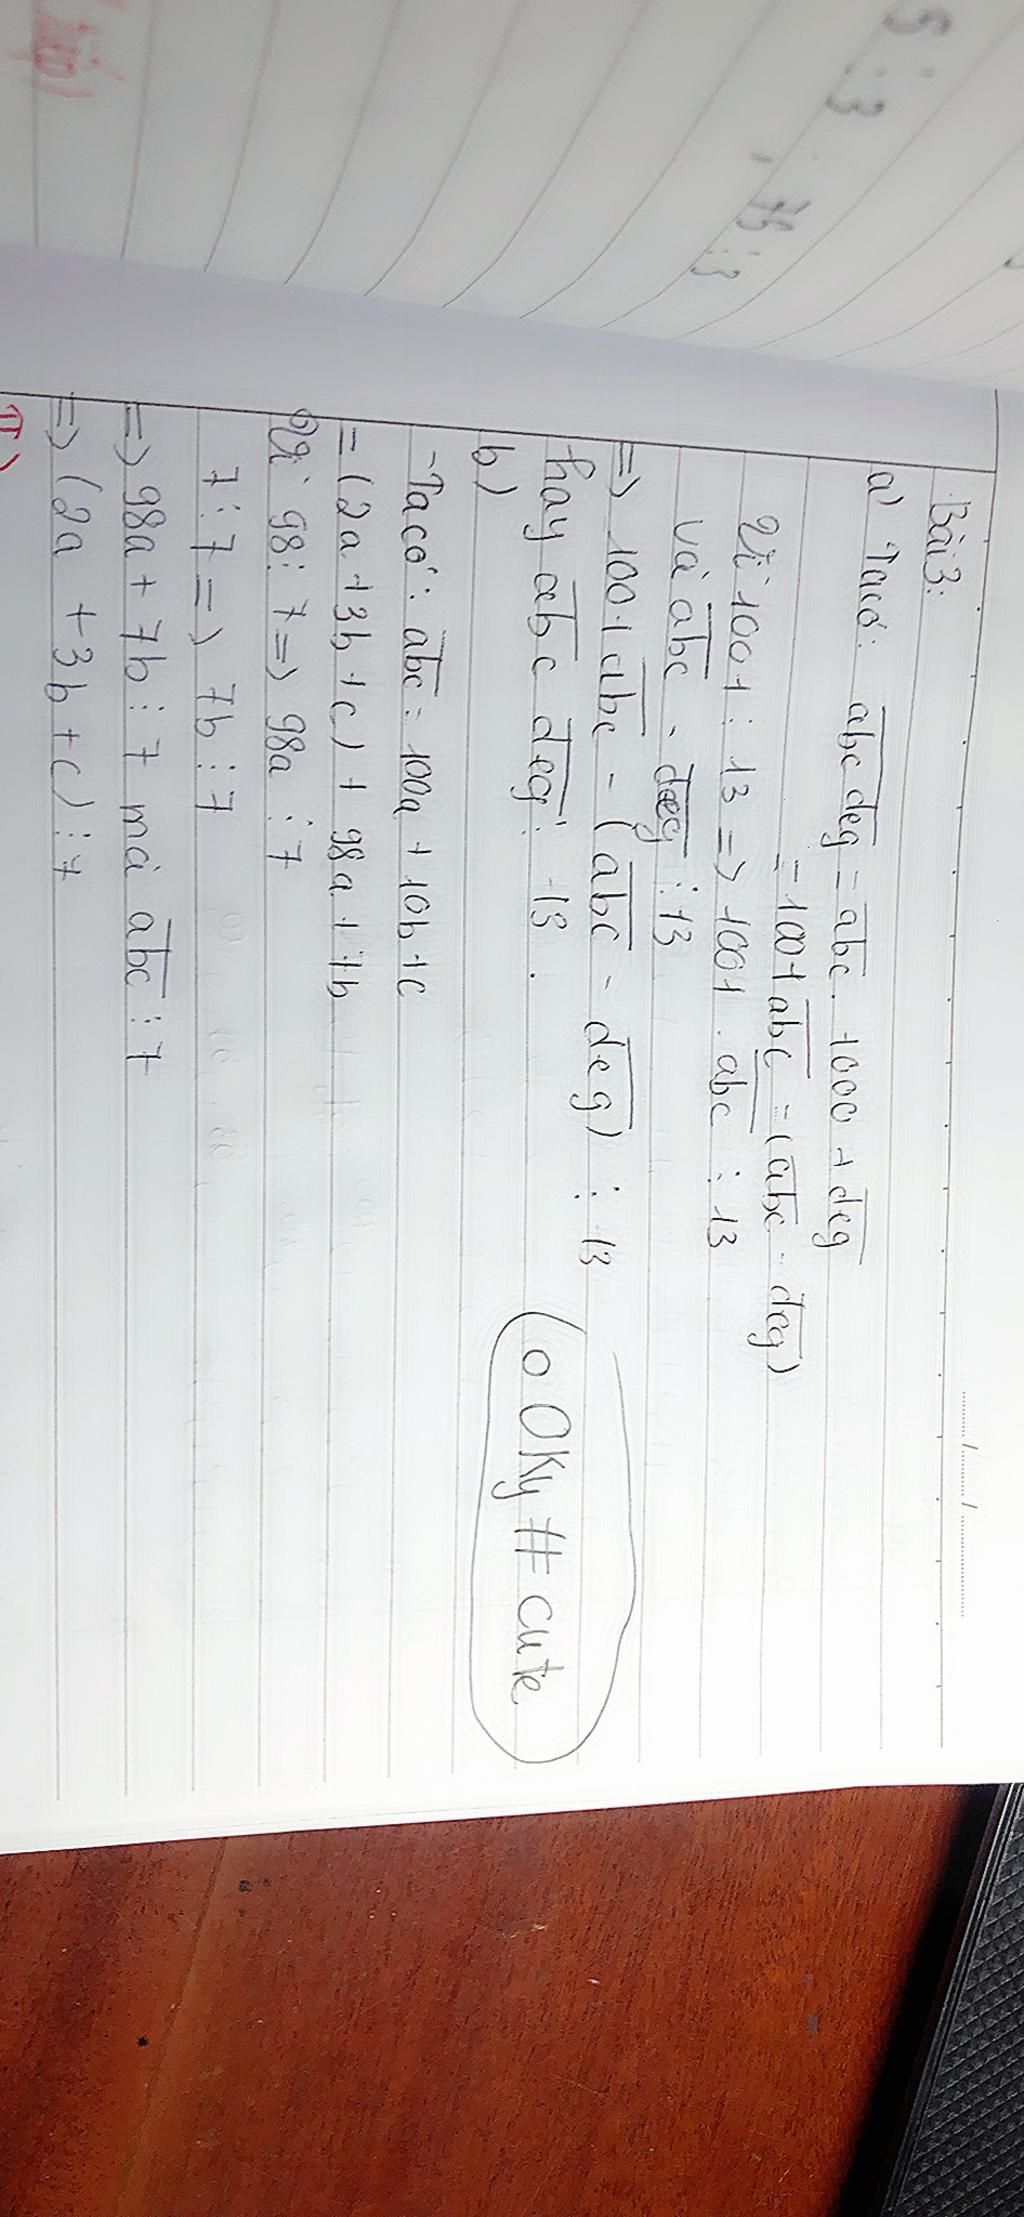 5⋮3 ; 75⋮3
Bài 3:
a) Ta có: abc deg = abc . 1000 + deg
= 1001 abc = (abc - deg)
Vì 1001 ⋮ 13 => 1001 . abc ⋮ 13
và abc - deg ⋮ 13
=> 1001 abc - (abc - deg) ⋮ 13
hay abc deg ⋮ 13 .
b)
- Ta có: abc = 100a + 10b + c
= (2a + 3b + c) + 98a + 7b
Vì 98 ⋮ 7 => 98a ⋮ 7
7 ⋮ 7 => 7b ⋮ 7
=> 98a + 7b ⋮ 7 mà abc ⋮ 7
=> (2a + 3b + c) ⋮ 7
o OKy # cute